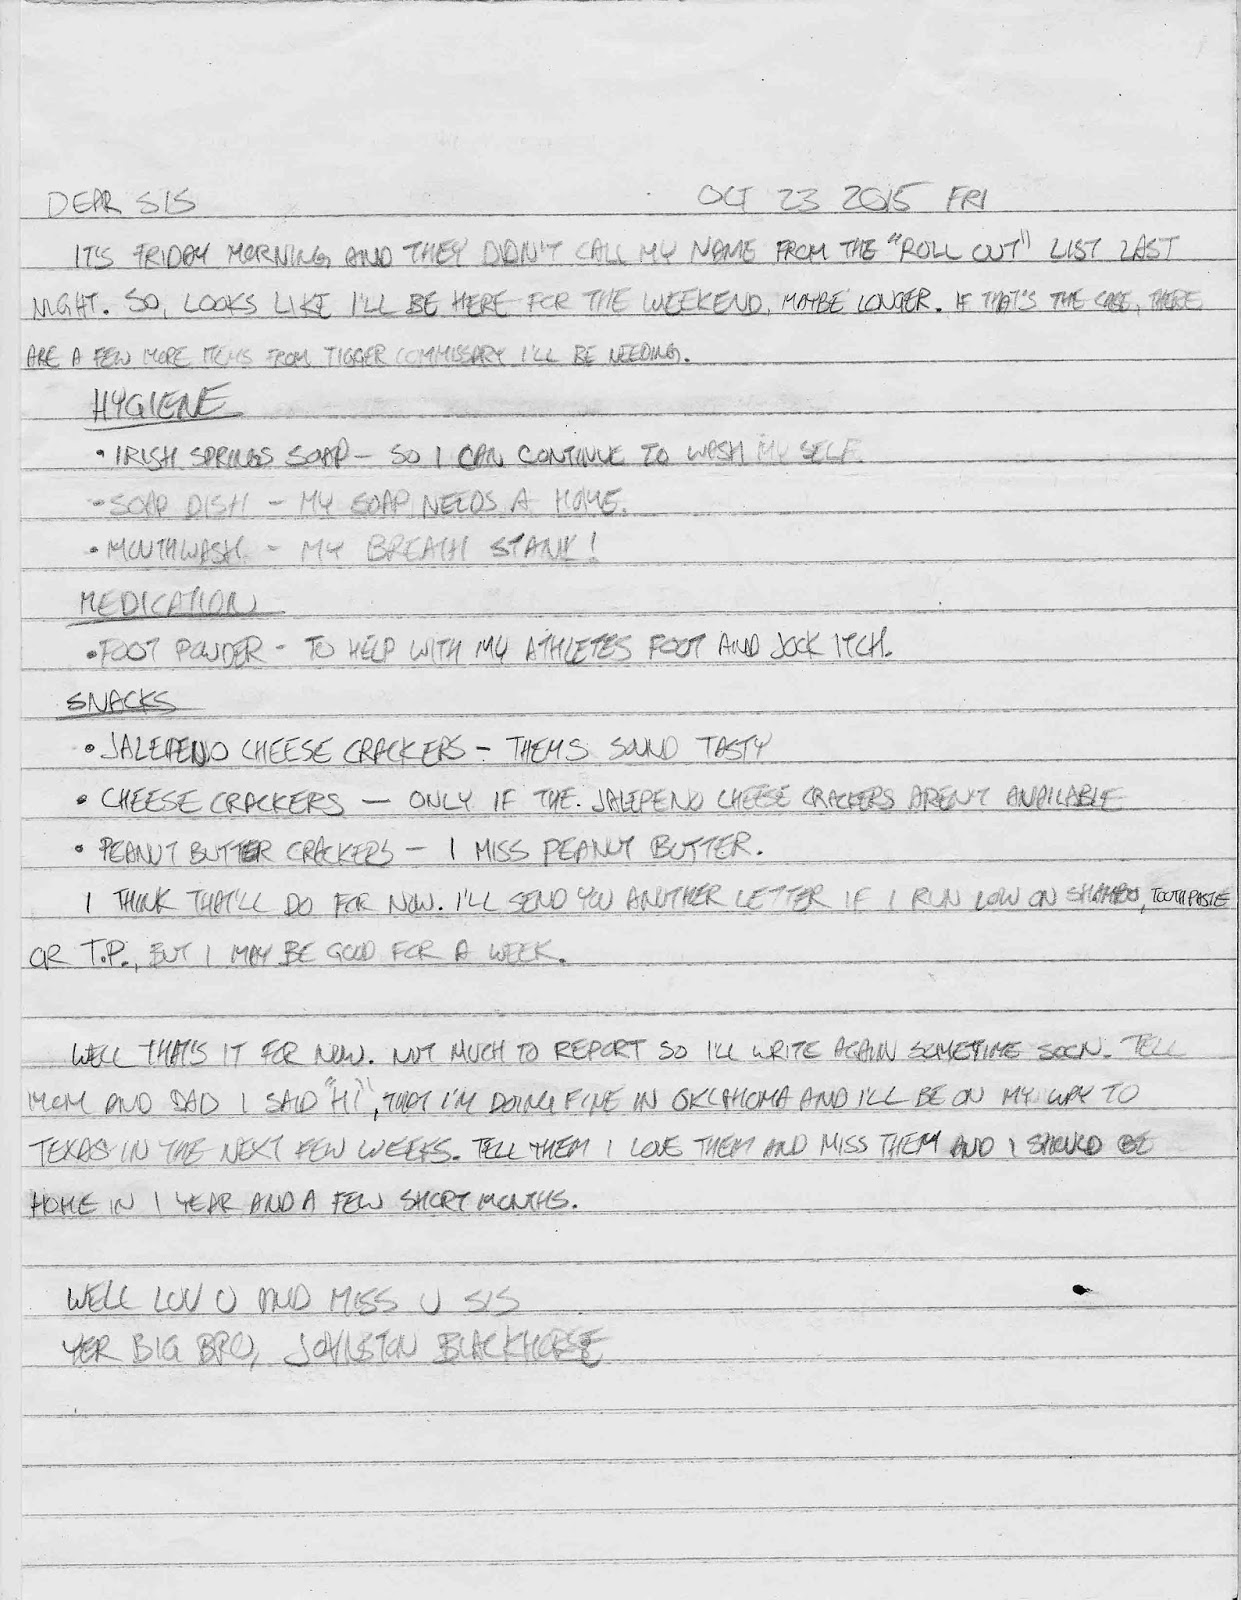 DEAR SIS OCT 23 2015 FRI
IT'S FRIDAY MORNING, AND THEY DIDN'T CALL MY NAME FROM THE "ROLL OUT" LIST LAST
NIGHT. SO, LOOKS LIKE I'LL BE HERE FOR THE WEEKEND, MAYBE LONGER. IF THAT'S THE CASE, THERE
ARE A FEW MORE ITEMS FROM TIGGER COMMISSARY I'LL BE NEEDING.
HYGIENE
• IRISH SPRINGS SOAP – SO I CAN CONTINUE TO WASH MY SELF.
- SOAP DISH – MY SOAP NEEDS A HOME.
• MOUTHWASH – MY BREATH STANK!
MEDICATION
• FOOT POWDER - TO HELP WITH MY ATHLETES FOOT AND JOCK ITCH.
SNACKS
• JALEPENO CHEESE CRACKERS – THEMS SOUND TASTY
• CHEESE CRACKERS — ONLY IF THE JALEPENO CHEESE CRACKERS AREN'T AVAILABLE
• PEANUT BUTTER CRACKERS – I MISS PEANUT BUTTER.
I THINK THAT'LL DO FOR NOW. I'LL SEND YOU ANOTHER LETTER IF I RUN LOW ON SHAMPOO, TOOTHPASTE
OR T.P., BUT I MAY BE GOOD FOR A WEEK.
WELL THAT'S IT FOR NOW. NOT MUCH TO REPORT SO I'LL WRITE AGAIN SOMETIME SOON. TELL
MOM AND DAD I SAID "HI", THAT I'M DOING FINE IN OKLAHOMA AND I'LL BE ON MY WAY TO
TEXAS IN THE NEXT FEW WEEKS. TELL THEM I LOVE THEM AND MISS THEM AND I SHOULD BE
HOME IN 1 YEAR AND A FEW SHORT MONTHS.
WELL LUV U AND MISS U SIS
YER BIG BRO, JOHNSTON BLACKHORSE